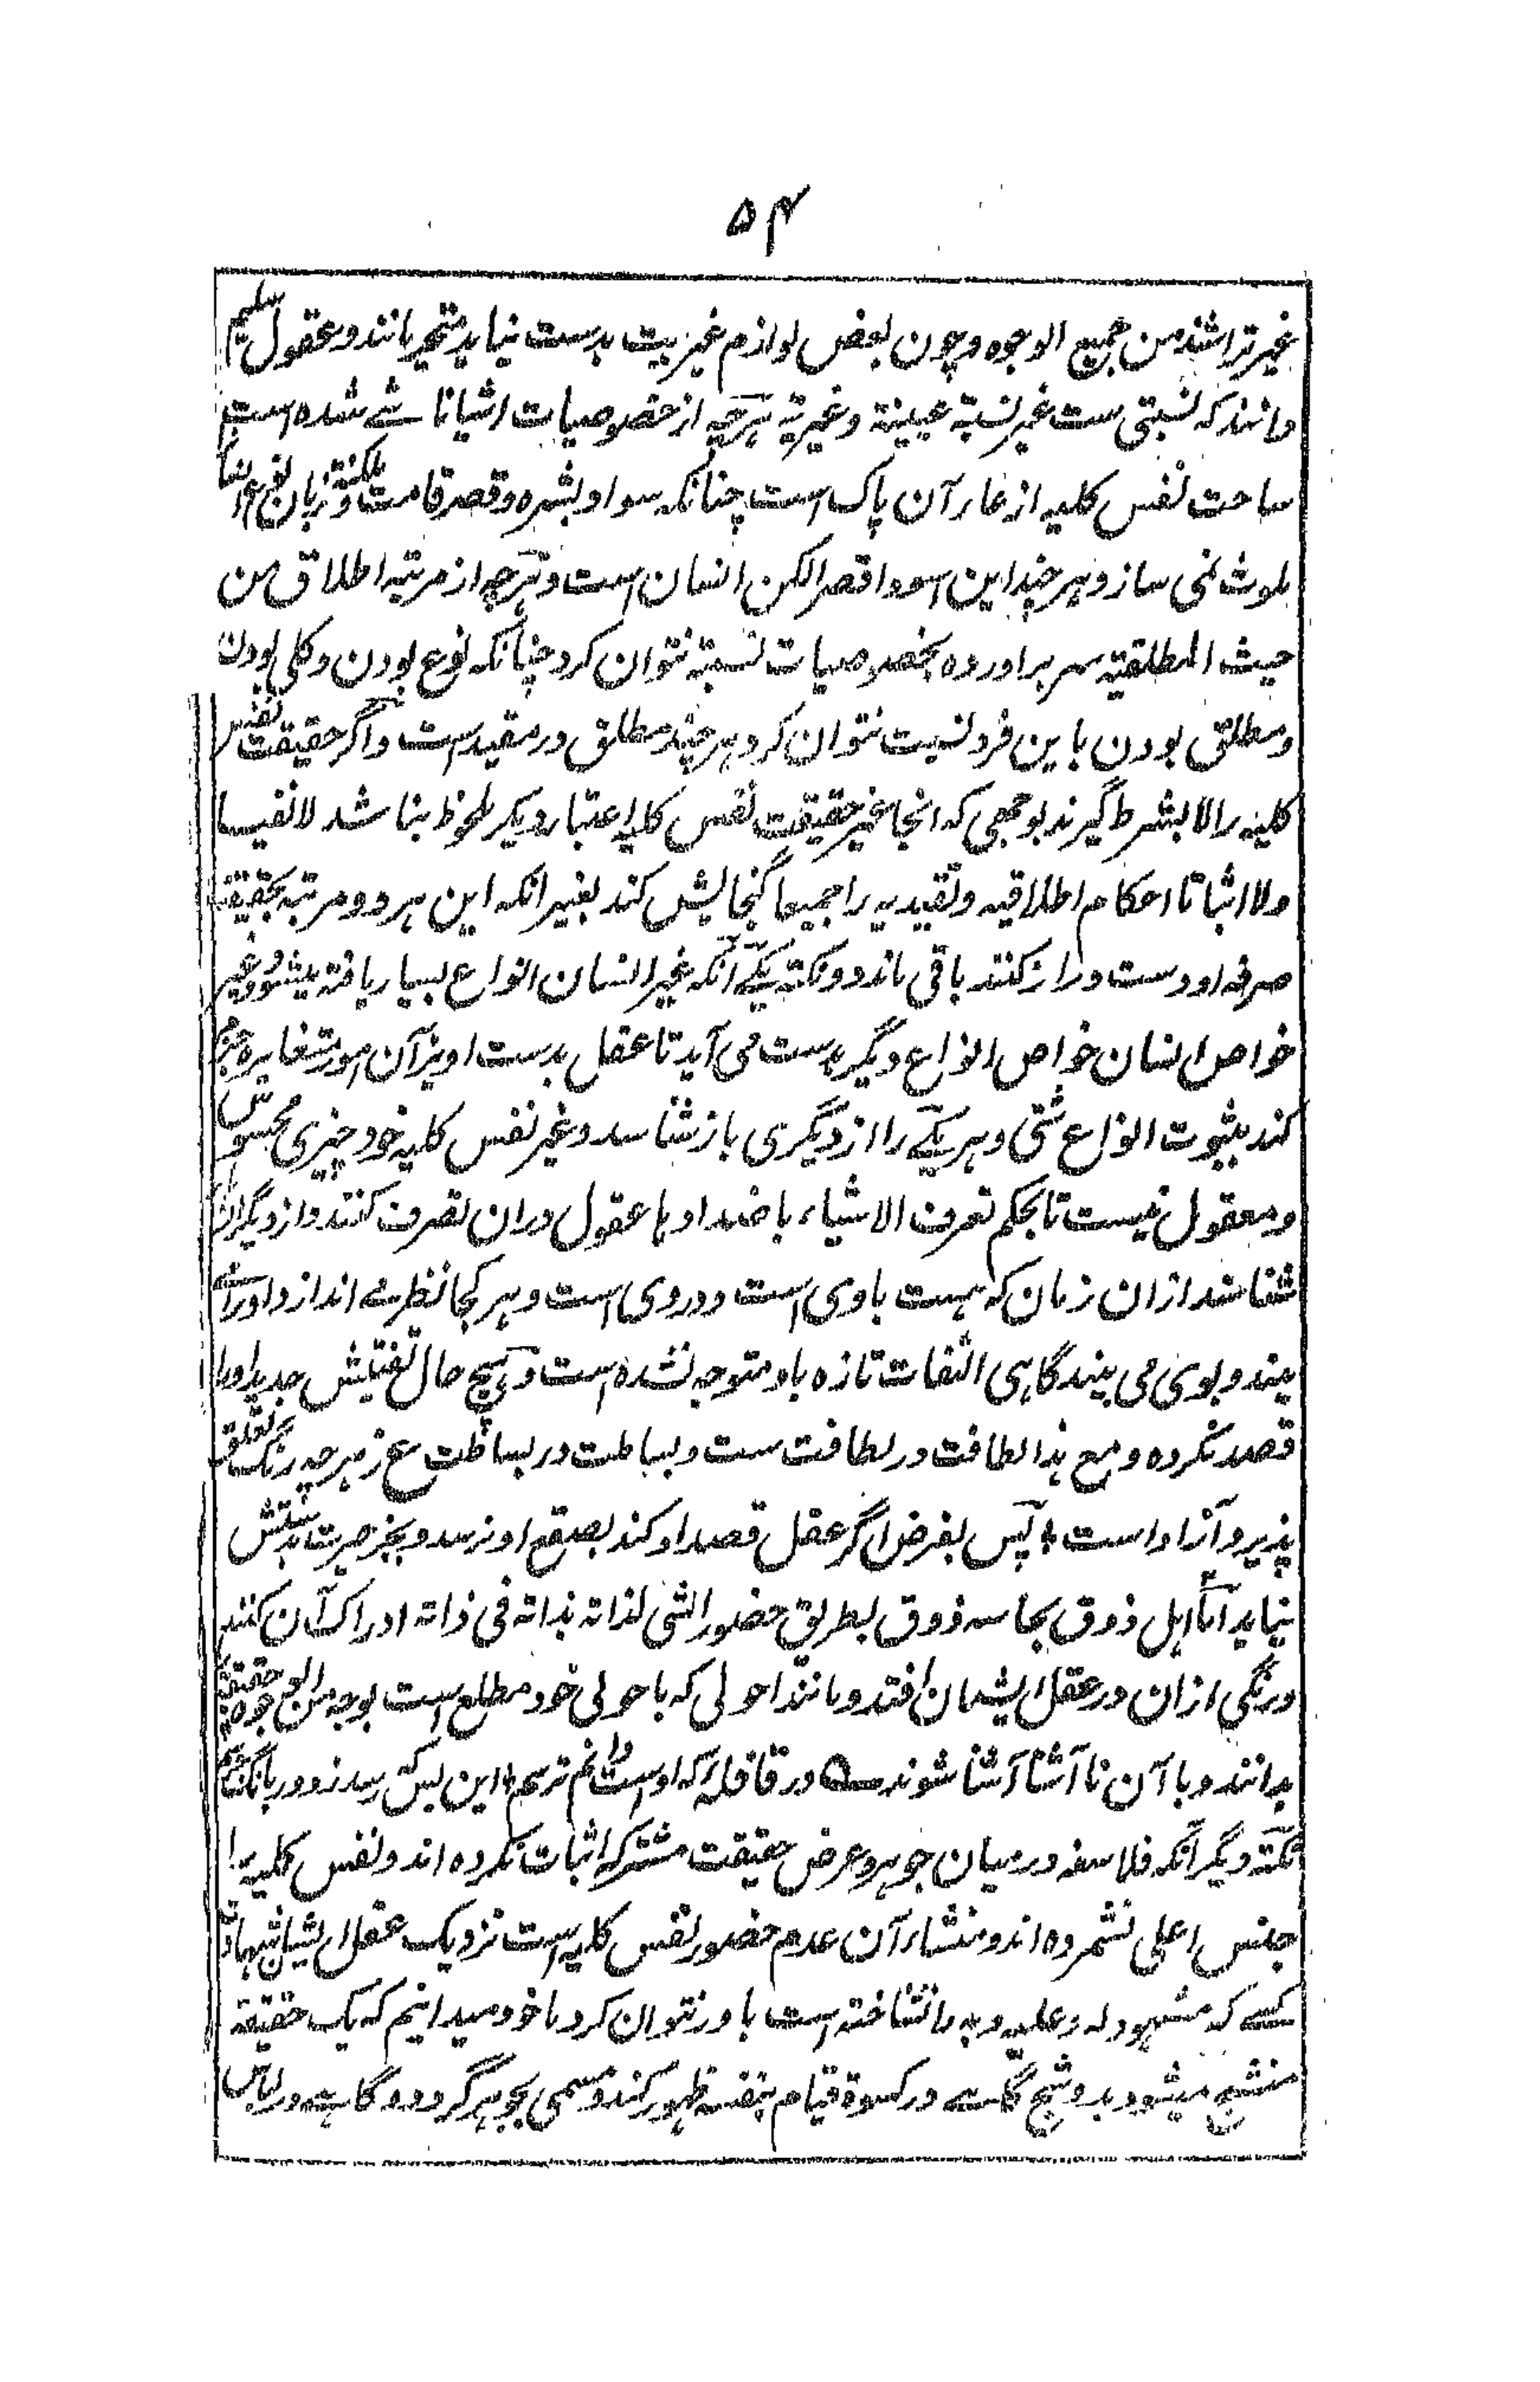 ۵۴
غیر تراشند من جمیع الوجوه و چون بعض لوازم غیریت بدست نیاید متحیر مانند و عقول سلیم
دانند که نسبتی ست غیر نسبته عینیة و غیریة هرچه از خصوصیات اشیا ناشے شده است
ساحت نفس کلیه از غبار آن پاک است چنانکه سواد بشره و قصر قامت و لکنة زبان نوع انسان را
ملوث نمی سازد هر چند این اسود اقصر الکن انسان است و هرچه از مرتبه اطلاق من
حیث المطلقیة سر بر آورده بخصوصیات نسبته نتوان کرد چنانکه نوع بودن و کلی بودن
و مطلق بودن باین فرد نسبت نتوان کرد هر چند مطلق در مقید است و اگر حقیقت نفس
کلیه را لا بشرط گیرند بوجهی که انجا غیر حقیقت نفس کلیه اعتبار دیگر ملحوظ نباشد لا نفیا
ولا اثباتا احکام اطلاقیه و تقیدیه را جمیعا گنجایش کند بغیر انکه این هر دو مرتبه بحقیقة
صرفه او دست دراز کنند باقی ماند دو نکته یکے آنکه غیر انسان انواع بسیار یافته میشود و غیر
خواص انسان خواص انواع دیگر بدست می آید تا عقل بدست اویز آن امور متغایره جزم
کند بثبوت انواع شتی و هر یکے را از دیگری باز شناسد و غیر نفس کلیه خود چیزی محسوس
و معقول نیست تا بحکم تعرف الاشیاء باضدادها عقول دران تصرف کنند و از دیگران
شناسند ازان زمان که هست باوی است و دروی است و هر کجا نظر مے اندازد اورا مے
بیند و بوی می بیند گاهی التفات تازه باو متوجه نشده است و هیچ حال تفتیش جدید اورا
قصد نکرده و مع هذا لطافت در لطافت ست و بساطت در بساطت ع ز هر چه رنگ تعلق
پذیرد آزاد است ؛ پس بفرض اگر عقل قصد او کند بصقع او نرسد و بجز حیرت بدستش
نیاید آما اهل ذوق بحاسه ذوق بطریق حضور الشی لذاته بذاته فی ذاته ادراک آن کنند
و رنگی ازان در عقل ایشان افتد و مانند احولی که باحولی خود مطلع است بوجه من الوجوه حقیقة
بدانند و با آن نا آشنا آشنا شوند ۵ در قافله که اوست دانم نرسم ؛ این بس که رسد ز دور بانگ
نکته دیگر آنکه فلاسفه درمیان جوهر و عرض حقیقت مشترکه اثبات نکرده اند و نفس کلیه را
جنس اعلی نشمرده اند و منشاء آن عدم حضور نفس کلیه است نزدیک عقل ایشان شهادت
کسے که مشهود له و علیه و به را نشناخته است باور نتوان کرد ما خود میدانیم که یک حقیقة
متشبح میشود بدو شبح گاہے در کسوة قیام بنفسه ظهور کند و مسمی بجوهر گردد و گاہے در لباس